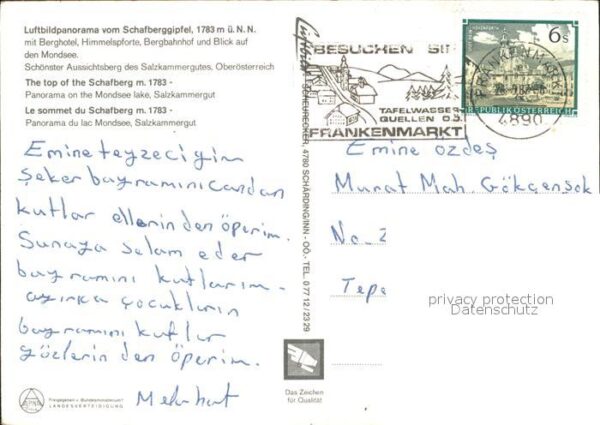 Luftbildpanorama vom Schafberggipfel, 1783 m ü. N. N.
mit Berghotel, Himmelspforte, Bergbahnhof und Blick auf
den Mondsee.
Schönster Aussichtsberg des Salzkammergutes, Oberösterreich
The top of the Schafberg m. 1783 -
Panorama on the Mondsee lake, Salzkammergut
Le sommet du Schafberg m. 1783 -
Panorama du lac Mondsee, Salzkammergut
Emine teyzeciğim
şeker bayramını candan
kutlar ellerinden öperim.
Sunaya selam eder
bayramını kutlarım.
ayırka çocukların
bayramını kutlar
gözlerinden öperim.
Mehmet
Freigegeben v. Bundesministerium f.
LANDESVERTEIDIGUNG
SCHERRECKER, 4780 SCHÄRDING/INN - OÖ. - TEL. 0 77 12 / 23 29
Das Zeichen
für Qualität
BESUCHEN SIE
TAFELWASSER
QUELLEN O.Ö.
FRANKENMARKT
FRANKENMARKT
4890
6 s
REPUBLIK ÖSTERREICH
Emine özdeş
Murat Mah. Gökçensok
No. 2
Tepe
privacy protection
Datenschutz